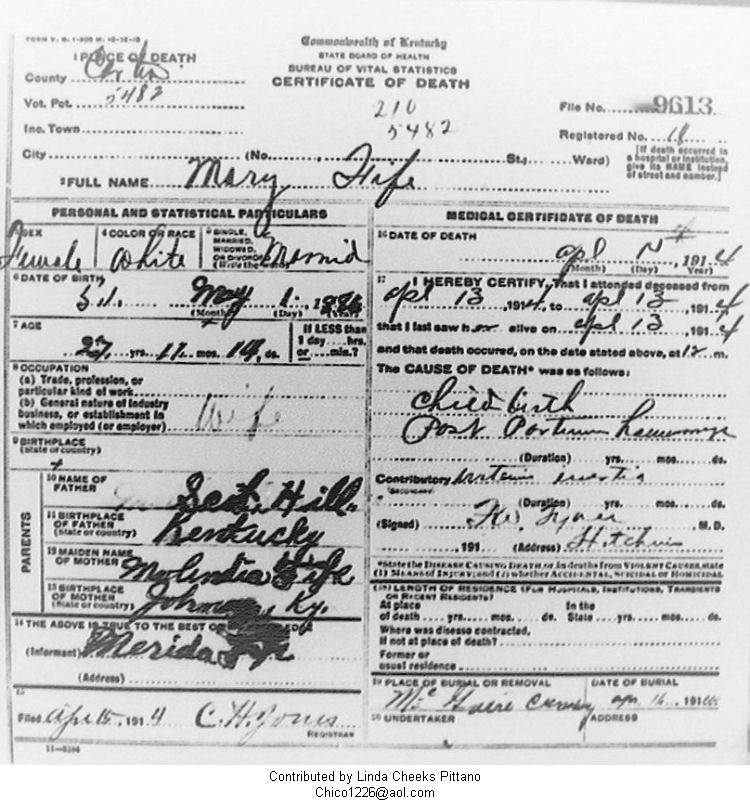 FORM V. S. 1-
Commonwealth of Kentucky
STATE BOARD OF HEALTH
BUREAU OF VITAL STATISTICS
CERTIFICATE OF DEATH
1 PLACE OF DEATH
County Carter
Vot. Pct. 5482
Inc. Town
City (No. St.; Ward)
210
5482
File No. 9613
Registered No. 18
[If death occurred in
a hospital or institution,
give its NAME instead
of street and number.]
2 FULL NAME Mary Fife
PERSONAL AND STATISTICAL PARTICULARS
3 SEX Female
4 COLOR OR RACE White
5 SINGLE,
MARRIED,
WIDOWED,
OR DIVORCED
(Write the word)
Married
6 DATE OF BIRTH
May 1 1886
(Month) (Day) (Year)
7 AGE
27 yrs. 11 mos. 14 ds.
If LESS than
1 day....hrs.
or....min.?
8 OCCUPATION
(a) Trade, profession, or
particular kind of work
(b) General nature of industry
business, or establishment in
which employed (or employer)
Wife
9 BIRTHPLACE
(State or country)
PARENTS
10 NAME OF
FATHER Scot Hill
11 BIRTHPLACE
OF FATHER
(State or country) Kentucky
12 MAIDEN NAME
OF MOTHER Fife
13 BIRTHPLACE
OF MOTHER
(State or country) Ky.
14 THE ABOVE IS TRUE TO THE BEST OF
(Informant) Merida
(Address)
15
Filed Apr 15, 1914 C. H. Jones
REGISTRAR
MEDICAL CERTIFICATE OF DEATH
16 DATE OF DEATH
Apl 1914
(Month) (Day) (Year)
17 I HEREBY CERTIFY, That I attended deceased from
Apl 13, 1914, to Apl 13, 1914
that I last saw her alive on Apl 13, 1914
and that death occurred, on the date stated above, at 12 m.
The CAUSE OF DEATH* was as follows:
Child birth
Post Partum
(Duration) yrs. mos. ds.
Contributory inertia
(SECONDARY)
(Duration) yrs. mos. ds.
(Signed) M.D.
, 191 (Address) Hitchins
*State the DISEASE CAUSING DEATH, or, in deaths from VIOLENT CAUSES, state
(1) MEANS OF INJURY; and (2) whether ACCIDENTAL, SUICIDAL or HOMICIDAL
18 LENGTH OF RESIDENCE (FOR HOSPITALS, INSTITUTIONS, TRANSIENTS
OR RECENT RESIDENTS)
At place
of death yrs. mos. ds.
In the
State yrs. mos. ds.
Where was disease contracted,
If not at place of death?
Former or
usual residence
19 PLACE OF BURIAL OR REMOVAL
DATE OF BURIAL
Apr 16, 191
20 UNDERTAKER
ADDRESS
Contributed by Linda Cheeks Pittano
Chico1226@aol.com